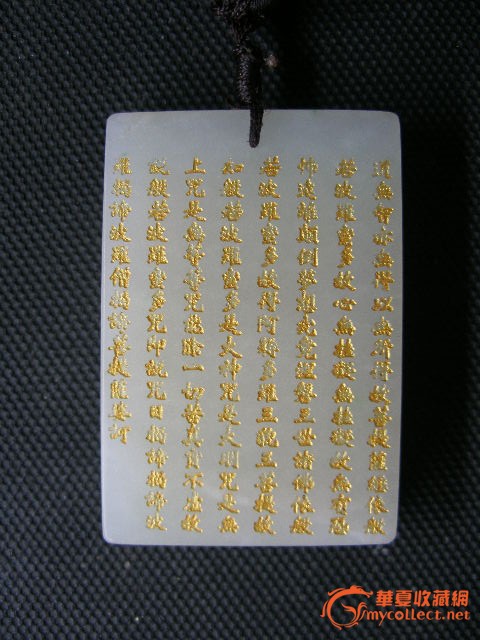 道無智亦無得以無所得故菩提薩埵依般
若波羅蜜多故心無罣礙無罣礙故無有恐
怖遠離顛倒夢想究竟涅槃三世諸佛依般
若波羅蜜多故得阿耨多羅三藐三菩提故
知般若波羅蜜多是大神咒是大明咒是無
上咒是無等等咒能除一切苦真實不虛故
說般若波羅蜜多咒即說咒曰揭諦揭諦波
羅揭諦波羅僧揭諦菩提薩婆訶
華夏收藏網
mycollect.net